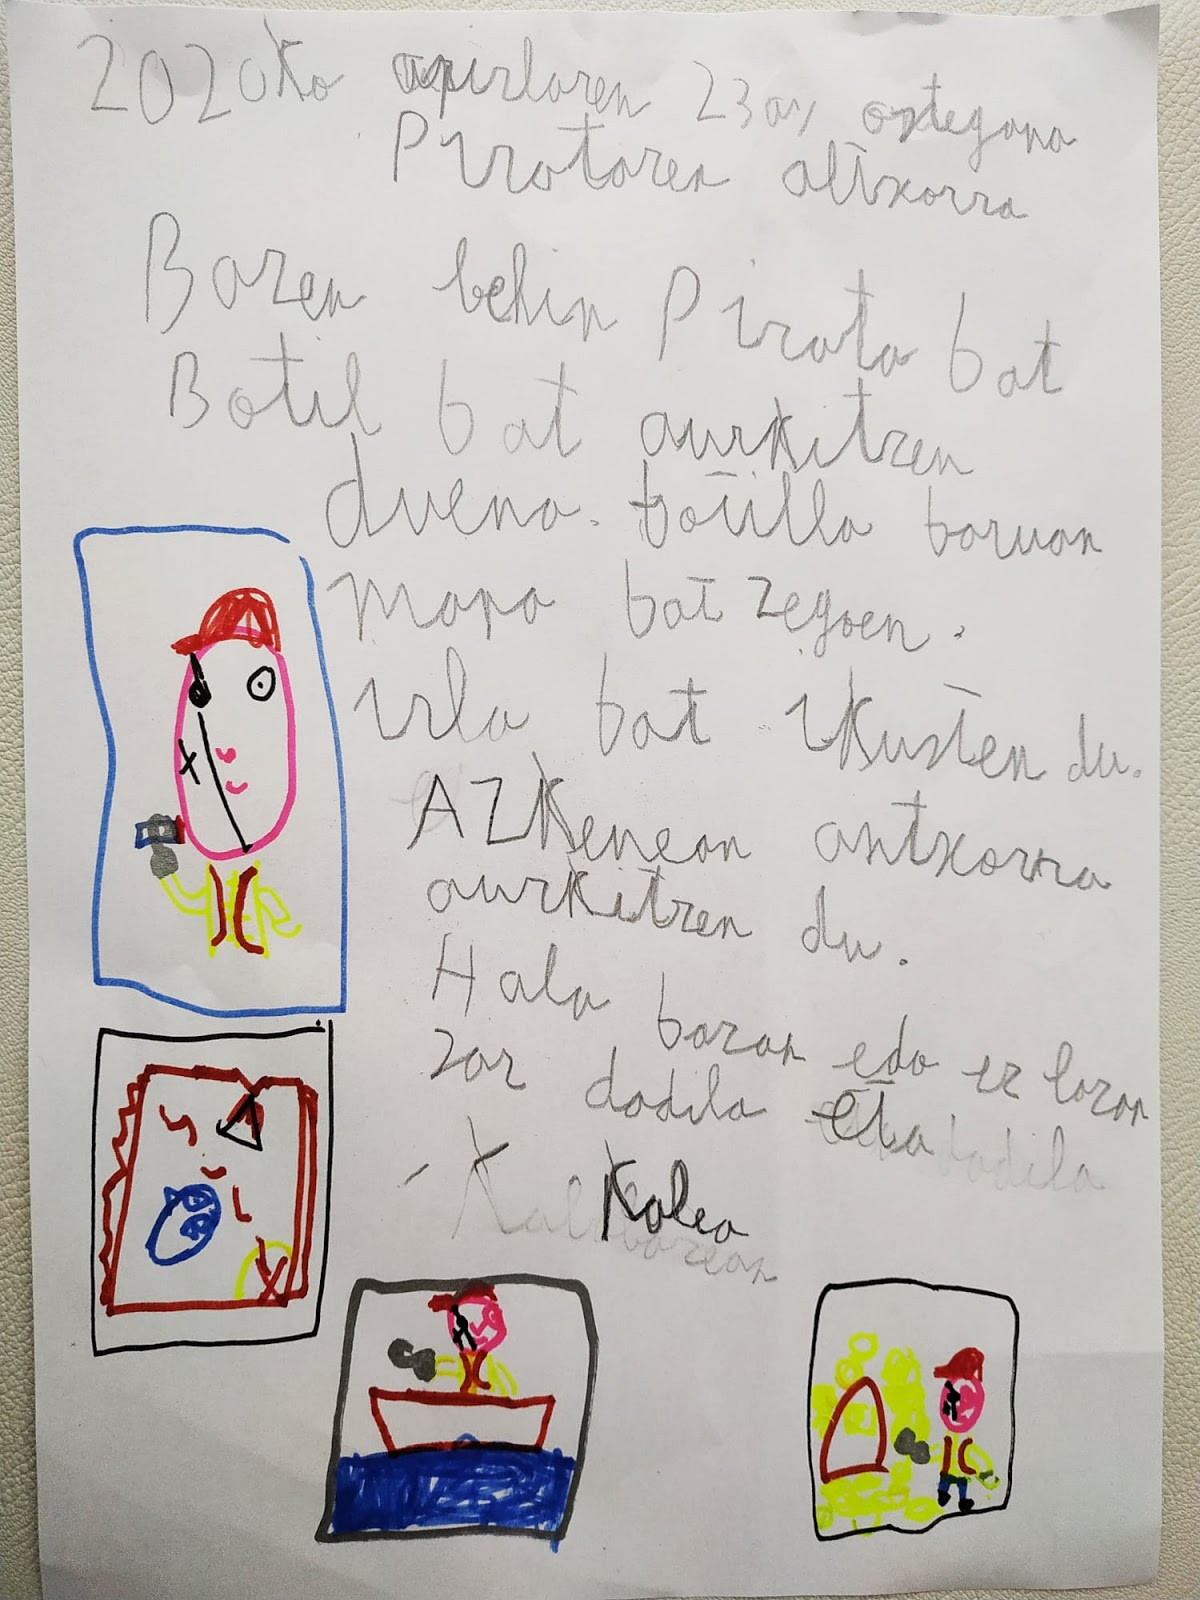 2020ko apirlaren 23an ostegana
Pirataren altxorra
Bazen behin Pirata bat
Botil bat aurkitzen
duena. botilla baruan
mapa bat zegoen.
irla bat ikusten du.
AZKenean antxorra
aurkitzen du.
Hala bazan edo ez bazan
zar dadila eta
Kalea